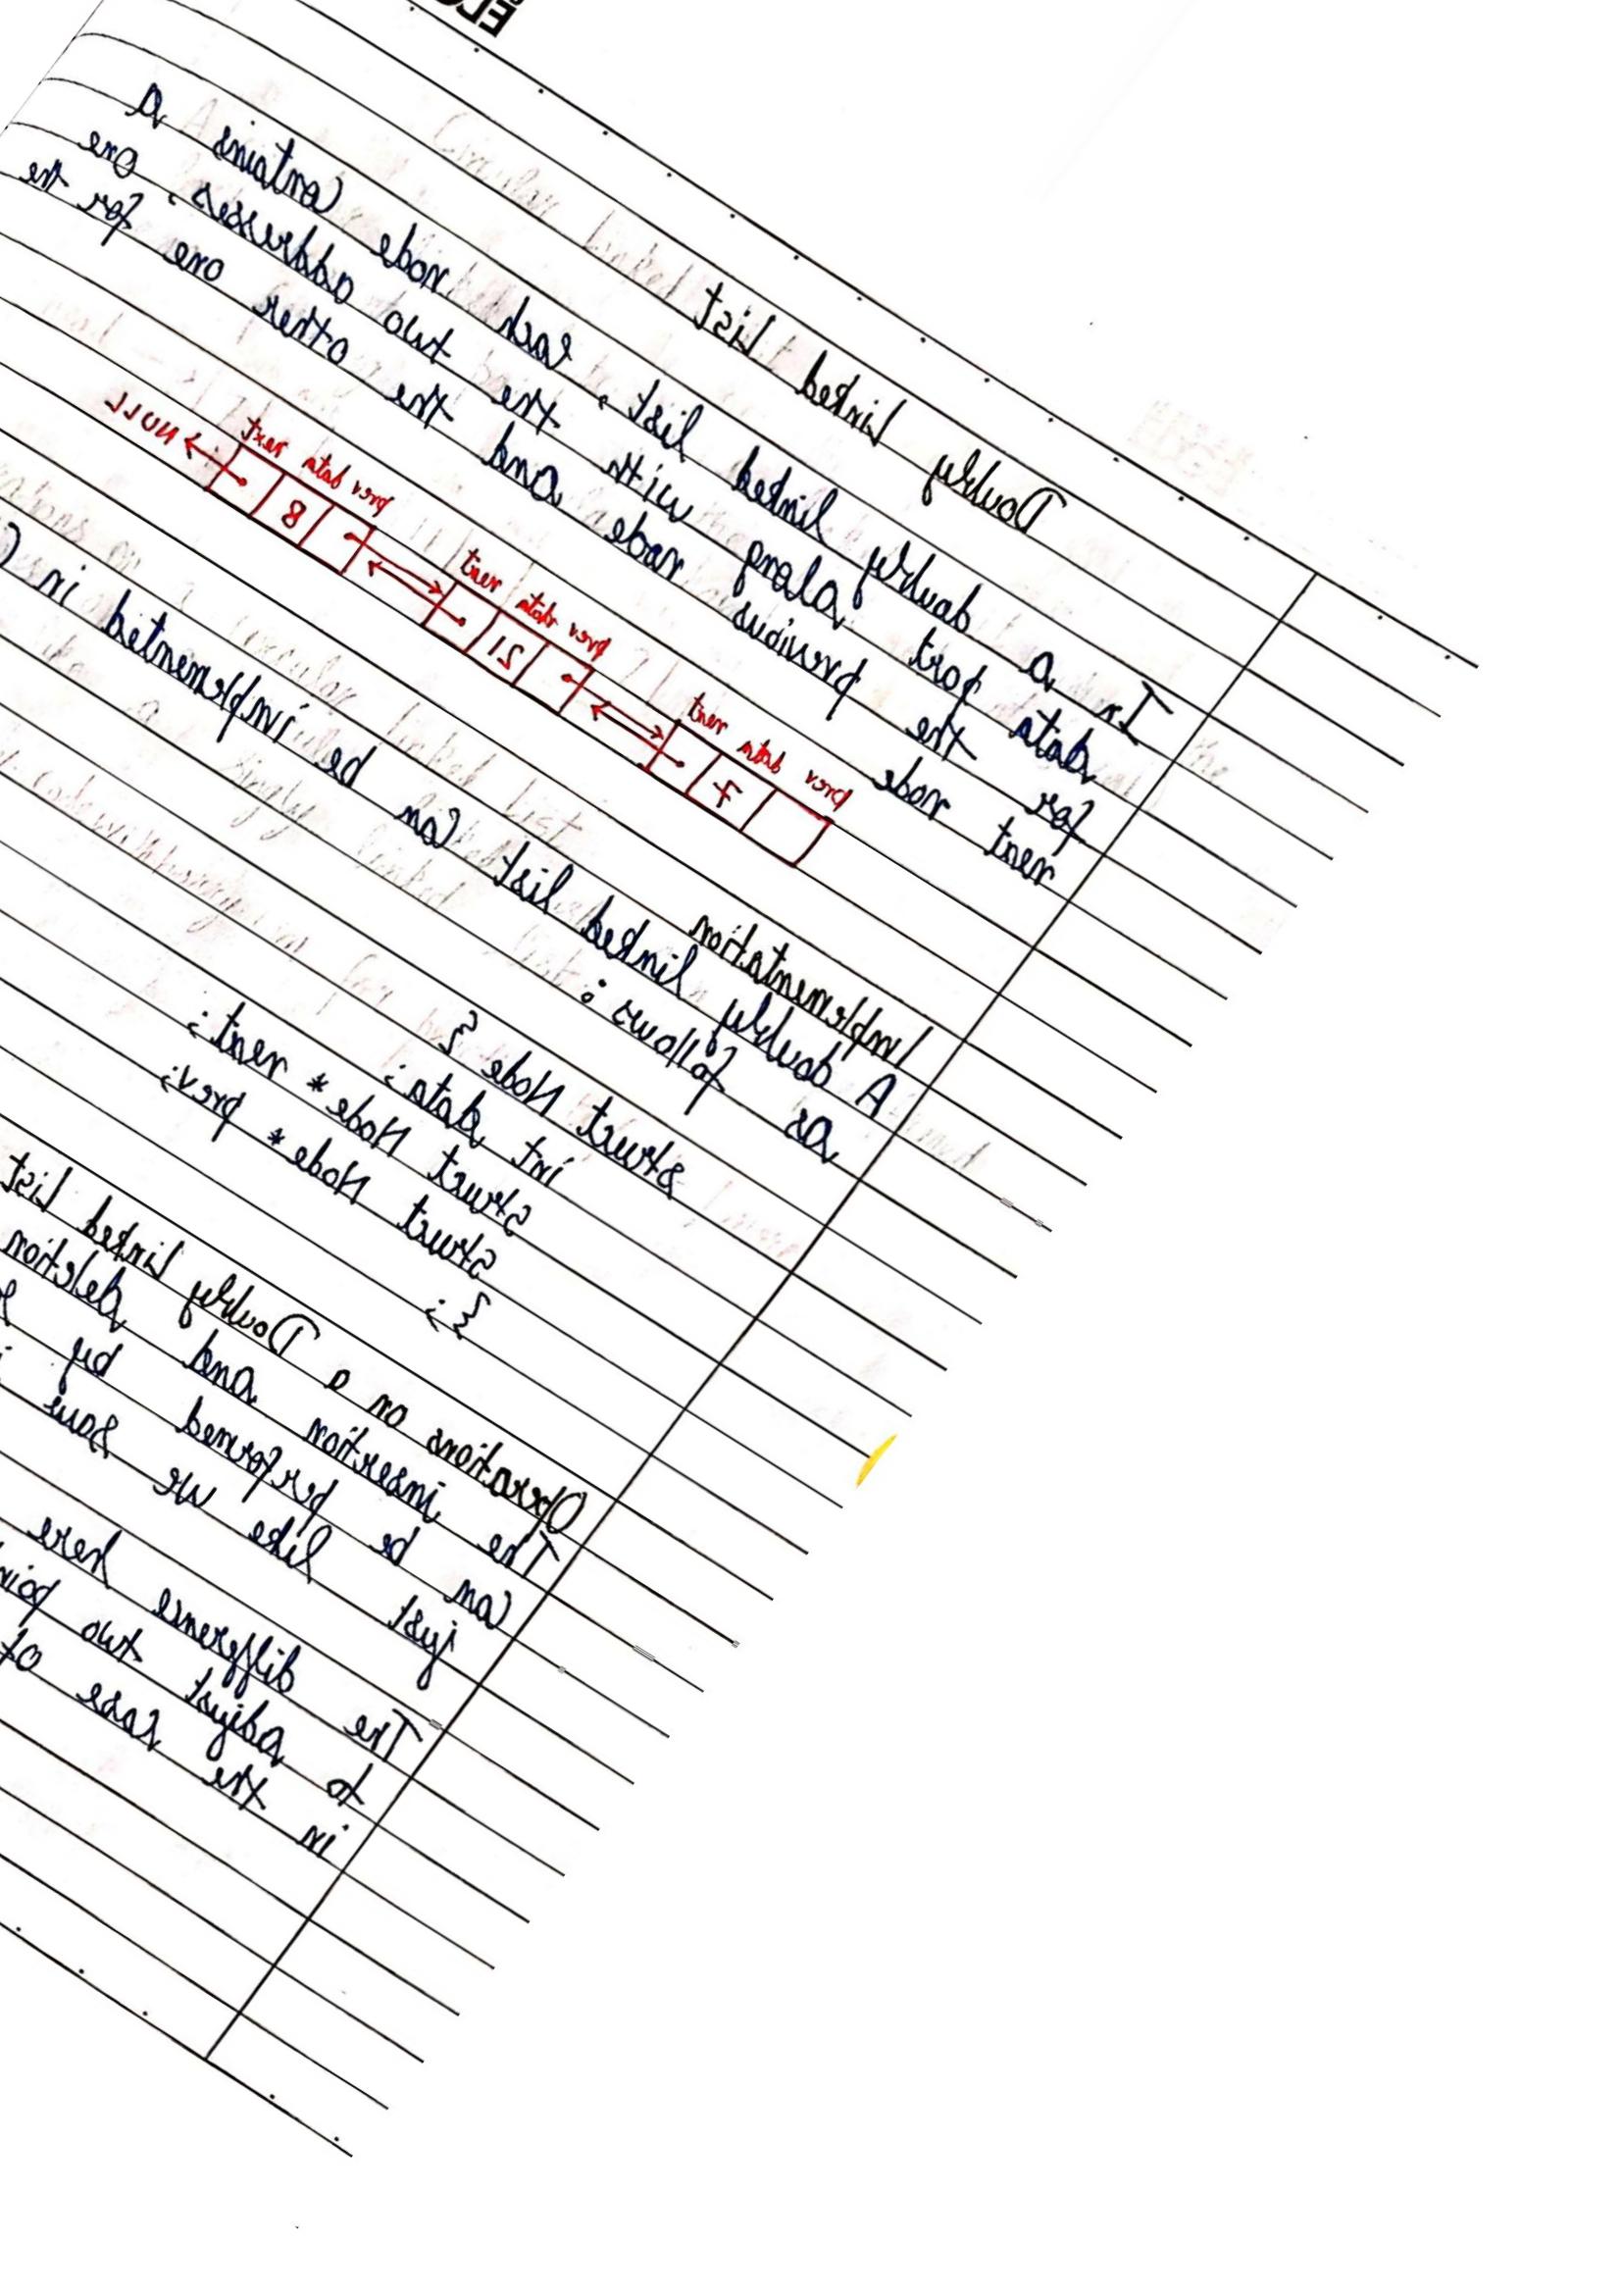 Doubly Linked List
In a doubly linked list, each node contains a
data part along with the two addresses, one
for the previous node and the other one for the
next node
prev data next prev data next prev data next
7 21 8 NULL
Implementation
A doubly linked list can be implemented in
as follows:
struct Node {
int data;
struct Node* next;
struct Node* prev;
};
Operations on a Doubly Linked List
The insertion and deletion
can be performed by
just like we saw
The difference here
to adjust two
in the case of